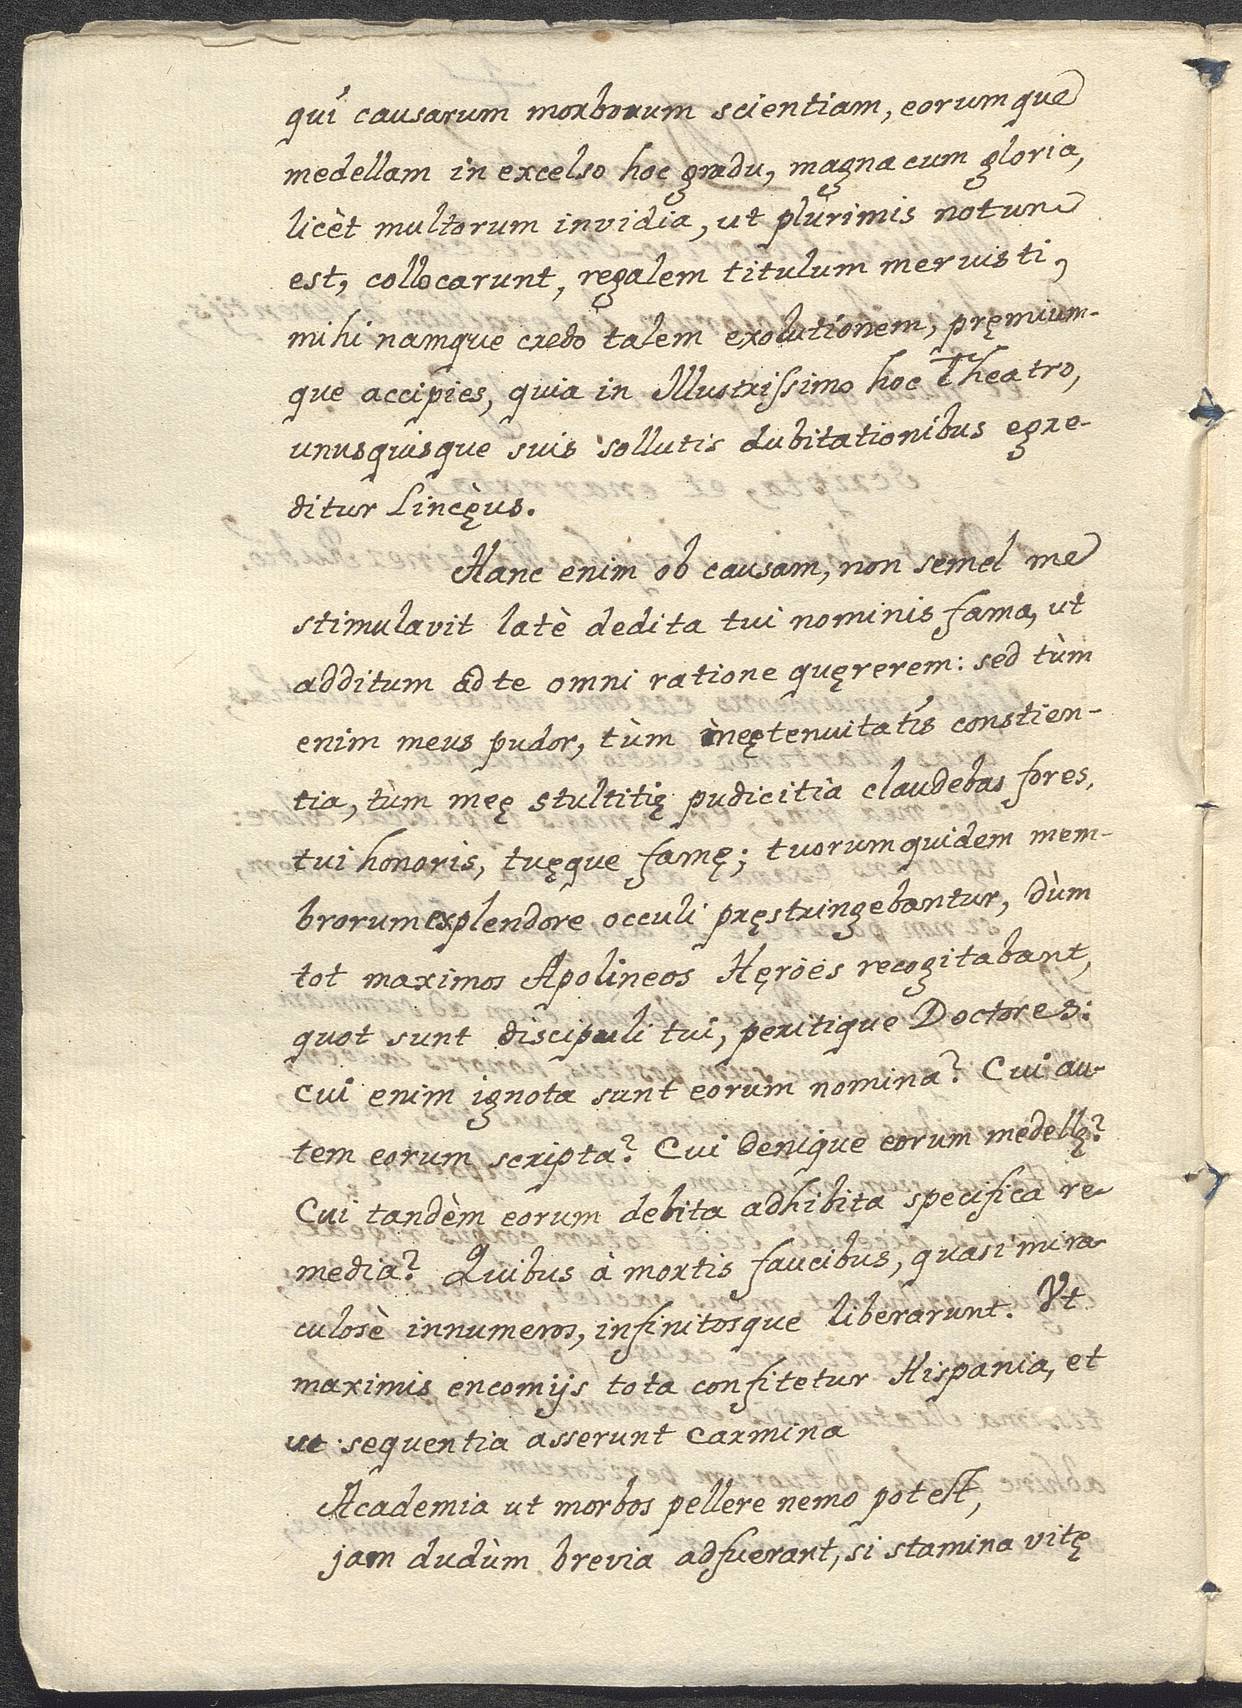 qui causarum morborum scientiam, eorumque
medellam in excelso hoc gradu, magna cum gloria,
licèt multorum invidia, ut plurimis notum
est, collocarunt, regalem titulum meruisti,
mihi namque credo talem exolutionem, pręmium-
que accipies, quia in Illustrissimo hoc Theatro,
unusquisque suis sollutis dubitationibus egre-
ditur Lincęus.
Hanc enim ob causam, non semel me
stimulavit latè dedita tui nominis fama, ut
additum ad te omni ratione quęrerem: sed tùm
enim meus pudor, tùm męę tenuitatis constien-
tia, tùm meę stultitię pudicitia claudebas fores,
tui honoris, tuęque famę; tuorum quidem mem-
brorum explendore occuli pręstringebantur, dùm
tot maximos Apolineos Hęröes recogitabant,
quot sunt discipuli tui, peritique Doctores:
cui enim ignota sunt eorum nomina? Cui au-
tem eorum scripta? Cui denique eorum medellę?
Cui tandèm eorum debita adhibita specifica re-
media? Quibus à mortis faucibus, quasi mira-
culosè innumeros, infinitosque liberarunt. Vt
maximis encomijs tota confitetur Hispania, et
ut sequentia asserunt carmina
Academia ut morbos pellere nemo potest,
jam dudùm brevia adfuerant, si stamina vitę